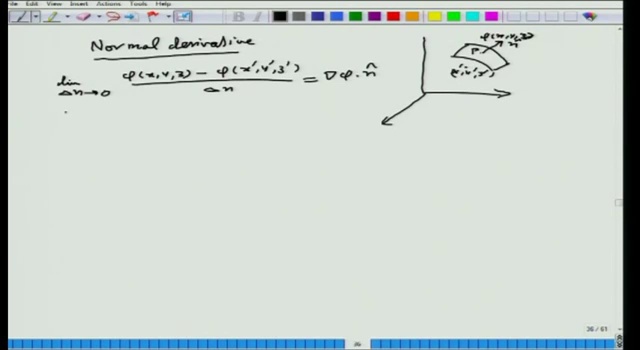 File Edit View Insert Actions Tools Help
Normal derivative
lim Δn→0 φ(x,y,z) − φ(x′,y′,z′) / Δn = ∇φ.n̂
φ(x,y,z)
P n̂
(x′,y′,z′)
36/61
36